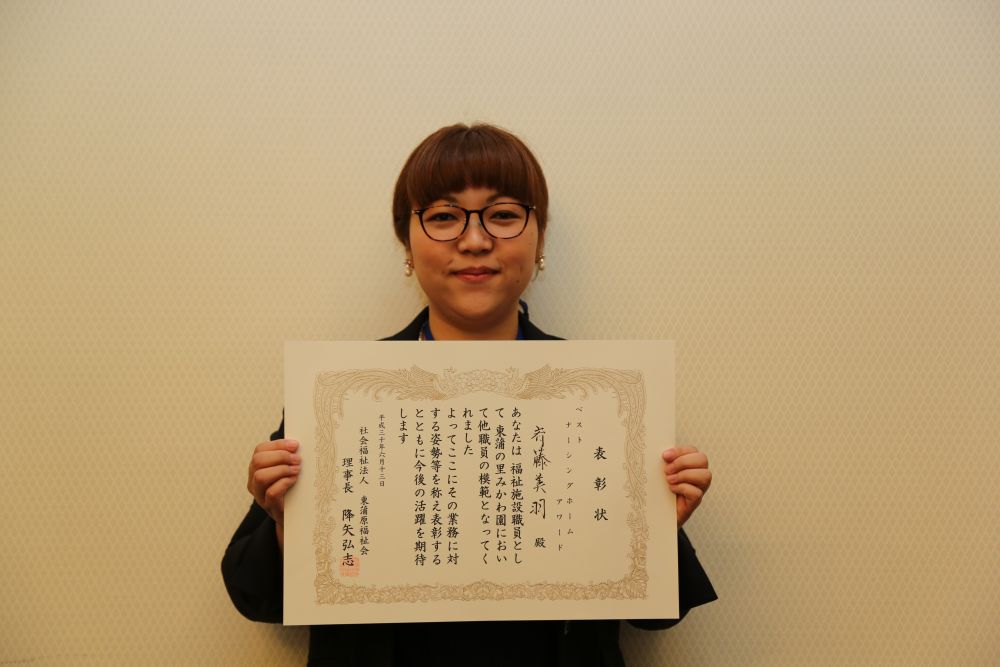 表彰状
ベスト
ナーシングホーム
アワード
斉藤美羽 殿
あなたは 福祉施設職員とし
て 東蒲の里みかわ園におい
て他職員の模範となってく
れました
よってここにその業務に対
する姿勢等を称え表彰する
とともに今後の活躍を期待
します
平成三十年六月十三日
社会福祉法人 東蒲原福祉会
理事長 降矢弘志